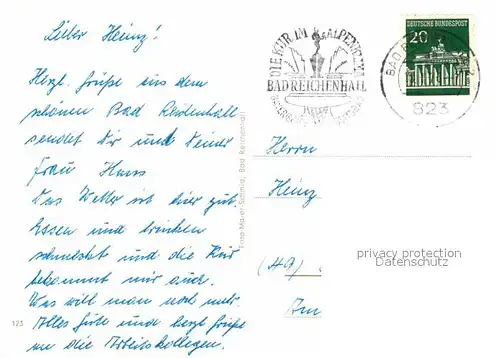 Lieber Heinz!
Herzl. Grüße aus dem
schönen Bad Reichenhall
sendet Dir und Deiner
Frau Hans
Das Wetter ist hier gut.
Essen und trinken
schmeckt und die Kur
bekommt mir auch.
Was will man noch mehr.
Alles Gute und herzl. Grüße
an die Arbeitskollegen.
123
Foto-Maier-Schmid, Bad Reichenhall
DIE KUR IM ALPENKLIMA
BAD REICHENHALL
DEUTSCHE BUNDESPOST
20
BAD
823
Herrn
Heinz
privacy protection
Datenschutz
(HA)
Am